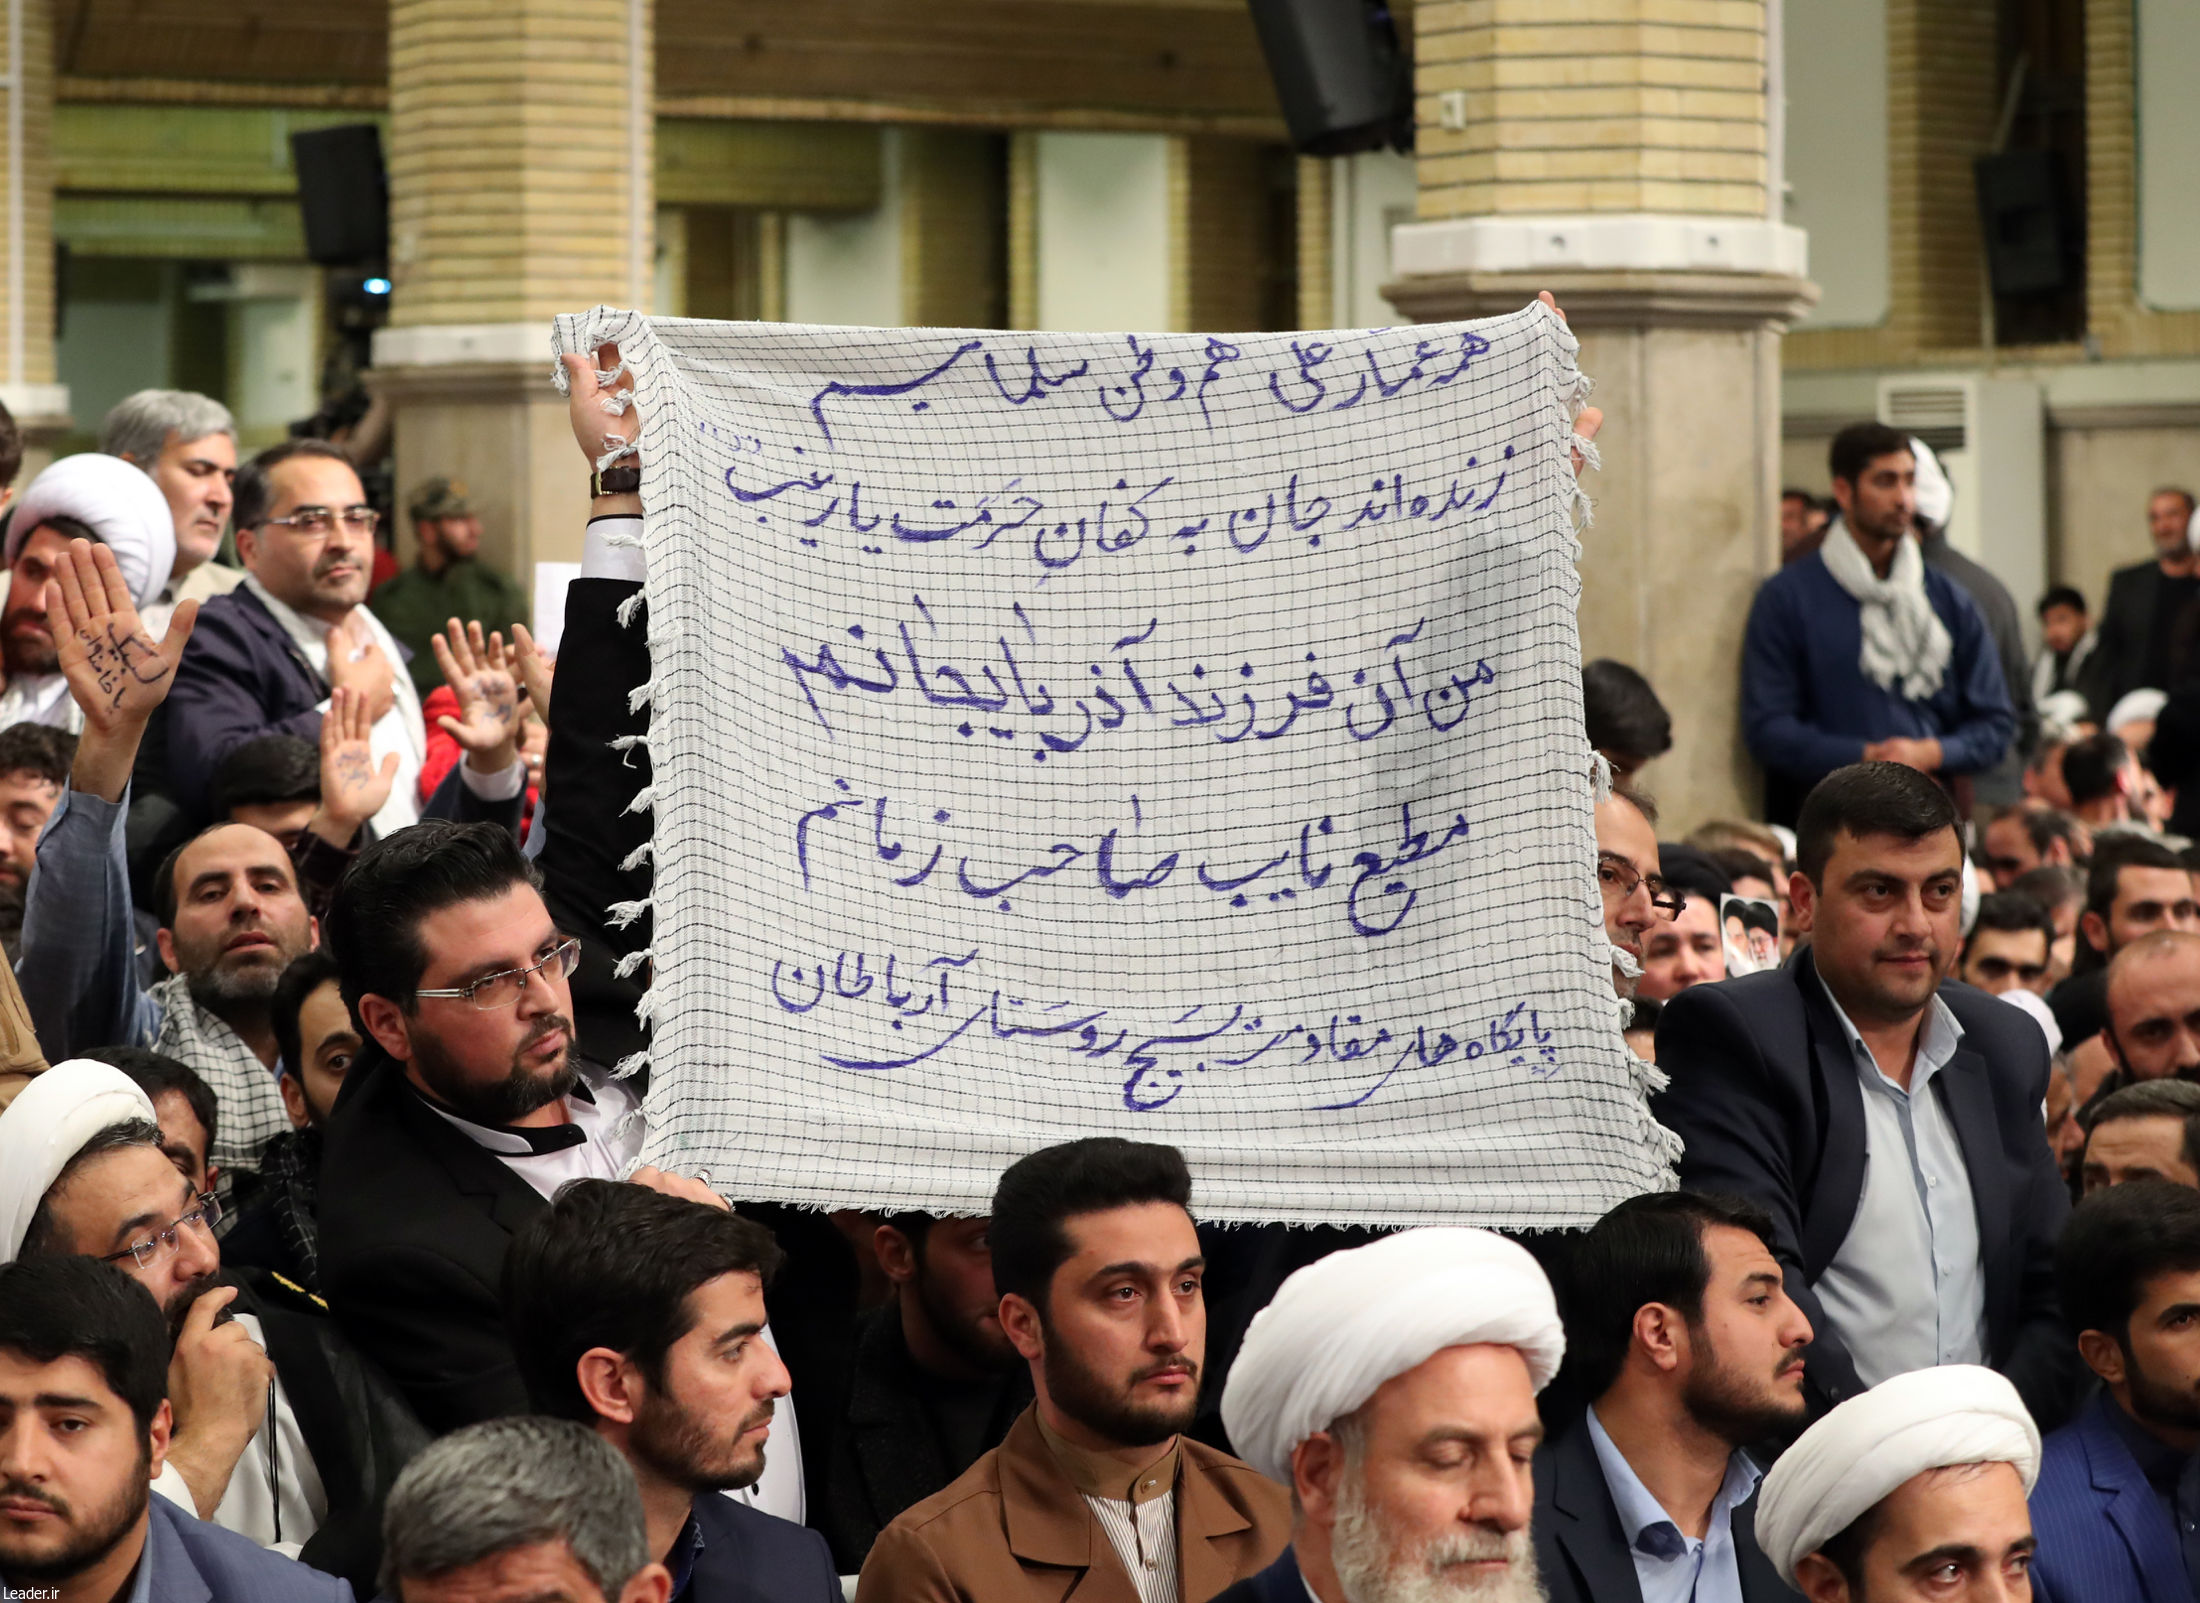 هر عمّار علی هم وطن سلماسیم
زنده‌اند جان به کفانِ حَرَمَت یا زینب
من آن فرزند آذربایجانم
مطیع نایب صاحب زمانم
پایگاه های مقاومت بسیج روستای آرباطان
لبیک
Leader.ir